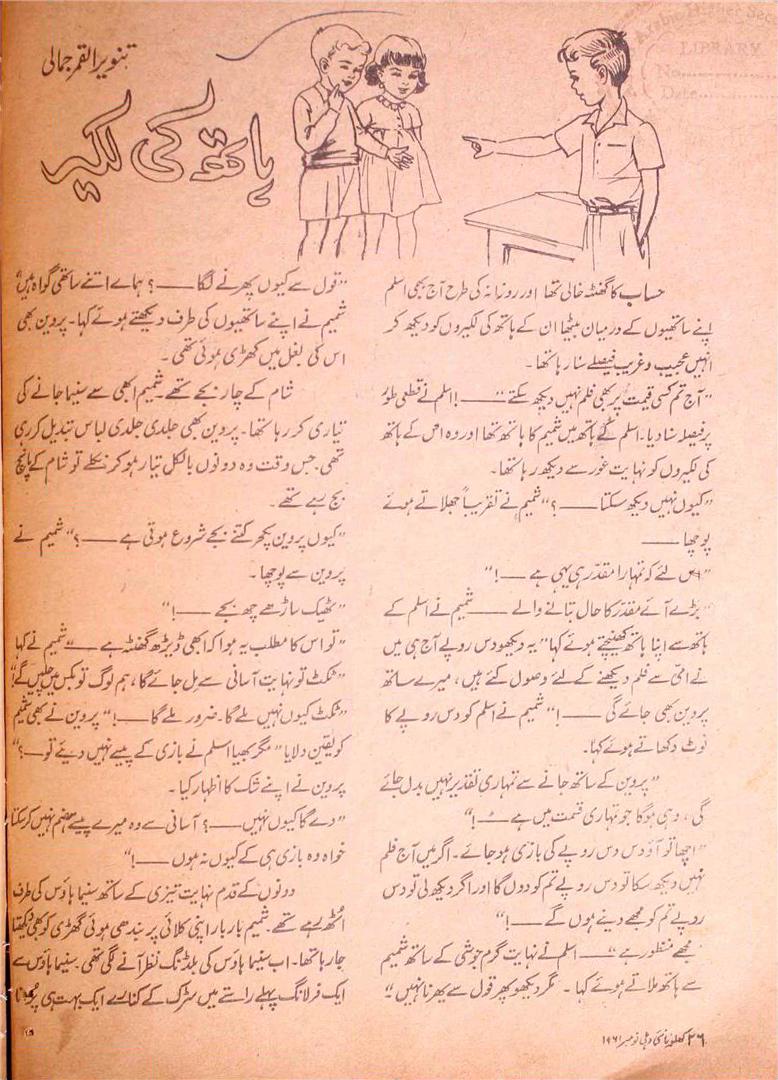 Arabic Higher Sec
LIBRARY
No.
Date
تنویر القمر جمالی
ہاتھ کی لکیر
حساب کا گھنٹہ خالی تھا اور روزانہ کی طرح آج بھی اسلم
اپنے ساتھیوں کے درمیان بیٹھا ان کے ہاتھ کی لکیروں کو دیکھ کر
انہیں عجیب و غریب فیصلے سنا رہا تھا۔
"آج تم کسی قیمت پر بھی فلم نہیں دیکھ سکتے ——!" اسلم نے قطعی طور
پر فیصلہ سنا دیا۔ اسلم کے ہاتھ میں شمیم کا ہاتھ تھا اور وہ اس کے ہاتھ
کی لکیروں کو نہایت غور سے دیکھ رہا تھا۔
"کیوں نہیں دیکھ سکتا ——؟" شمیم نے تقریباً جھلاتے ہوئے
پوچھا ——
"اس لئے کہ تمہارا مقدّر ہی یہی ہے ——!"
"بڑے آئے مقدّر کا حال بتانے والے —— شمیم نے اسلم کے
ہاتھ سے اپنا ہاتھ کھینچتے ہوئے کہا" یہ دیکھو دس روپے آج ہی میں
نے امّی سے فلم دیکھنے کے لئے وصول کئے ہیں، میرے ساتھ
پروین بھی جائے گی ——!" شمیم نے اسلم کو دس روپے کا
نوٹ دکھاتے ہوئے کہا۔
"پروین کے ساتھ جانے سے تمہاری تقدیر نہیں بدل جائے
گی، وہی ہوگا جو تمہاری قسمت میں ہے ——!"
"اچھا تو آؤ دس دس روپے کی بازی ہو جائے۔ اگر میں آج فلم
نہیں دیکھ سکا تو دس روپے تم کو دوں گا اور اگر دیکھ لی تو دس
روپے تم کو مجھے دینے ہوں گے ——!"
مجھے منظور ہے" —— اسلم نے نہایت گرم جوشی کے ساتھ شمیم
سے ہاتھ ملاتے ہوئے کہا۔ مگر دیکھو پھر قول سے پھرنا نہیں"
"قول سے کیوں پھرنے لگا ——؟ ہمارے اتنے ساتھی گواہ ہیں"
شمیم نے اپنے ساتھیوں کی طرف دیکھتے ہوئے کہا۔ پروین بھی
اس کی بغل میں کھڑی ہوئی تھی۔
شام کے چار بجے تھے۔ شمیم ابھی سے سنیما جانے کی
تیاری کر رہا تھا۔ پروین بھی جلدی جلدی لباس تبدیل کر رہی
تھی۔ جس وقت وہ دونوں بالکل تیار ہو کر نکلے تو شام کے پانچ
بج رہے تھے۔
"کیوں پروین پکچر کتنے بجے شروع ہوتی ہے ——؟" شمیم نے
پروین سے پوچھا۔
"ٹھیک ساڑھے چھ بجے ——!"
"تو اس کا مطلب یہ ہوا کہ ابھی ڈیڑھ گھنٹہ ہے —— "شمیم نے کہا
"ٹکٹ تو نہایت آسانی سے مل جائے گا، ہم لوگ تو بکس میں چلیں گے!"
"ٹکٹ کیوں نہیں ملے گا۔ ضرور ملے گا ——!" پروین نے بھی شمیم
کو یقین دلایا" مگر بھیا اسلم نے بازی کے پیسے نہیں دیئے تو ——؟"
پروین نے اپنے شک کا اظہار کیا۔
"دے گا کیوں نہیں ——؟ آسانی سے وہ میرے پیسے ہضم نہیں کر سکتا
خواہ وہ بازی ہی کے کیوں نہ ہوں ——!"
دونوں کے قدم نہایت تیزی کے ساتھ سنیما ہاؤس کی طرف
اٹھ رہے تھے۔ شمیم بار بار اپنی کلائی پر بندھی ہوئی گھڑی کو بھی دیکھتا
جا رہا تھا۔ اب سنیما ہاؤس کی بلڈنگ نظر آنے لگی تھی۔ سنیما ہاؤس سے
ایک فرلانگ پہلے راستے میں سڑک کے کنارے ایک بہت ہی پرانا
۲۶ کھلونا نئی دہلی نومبر ۱۹۶۱